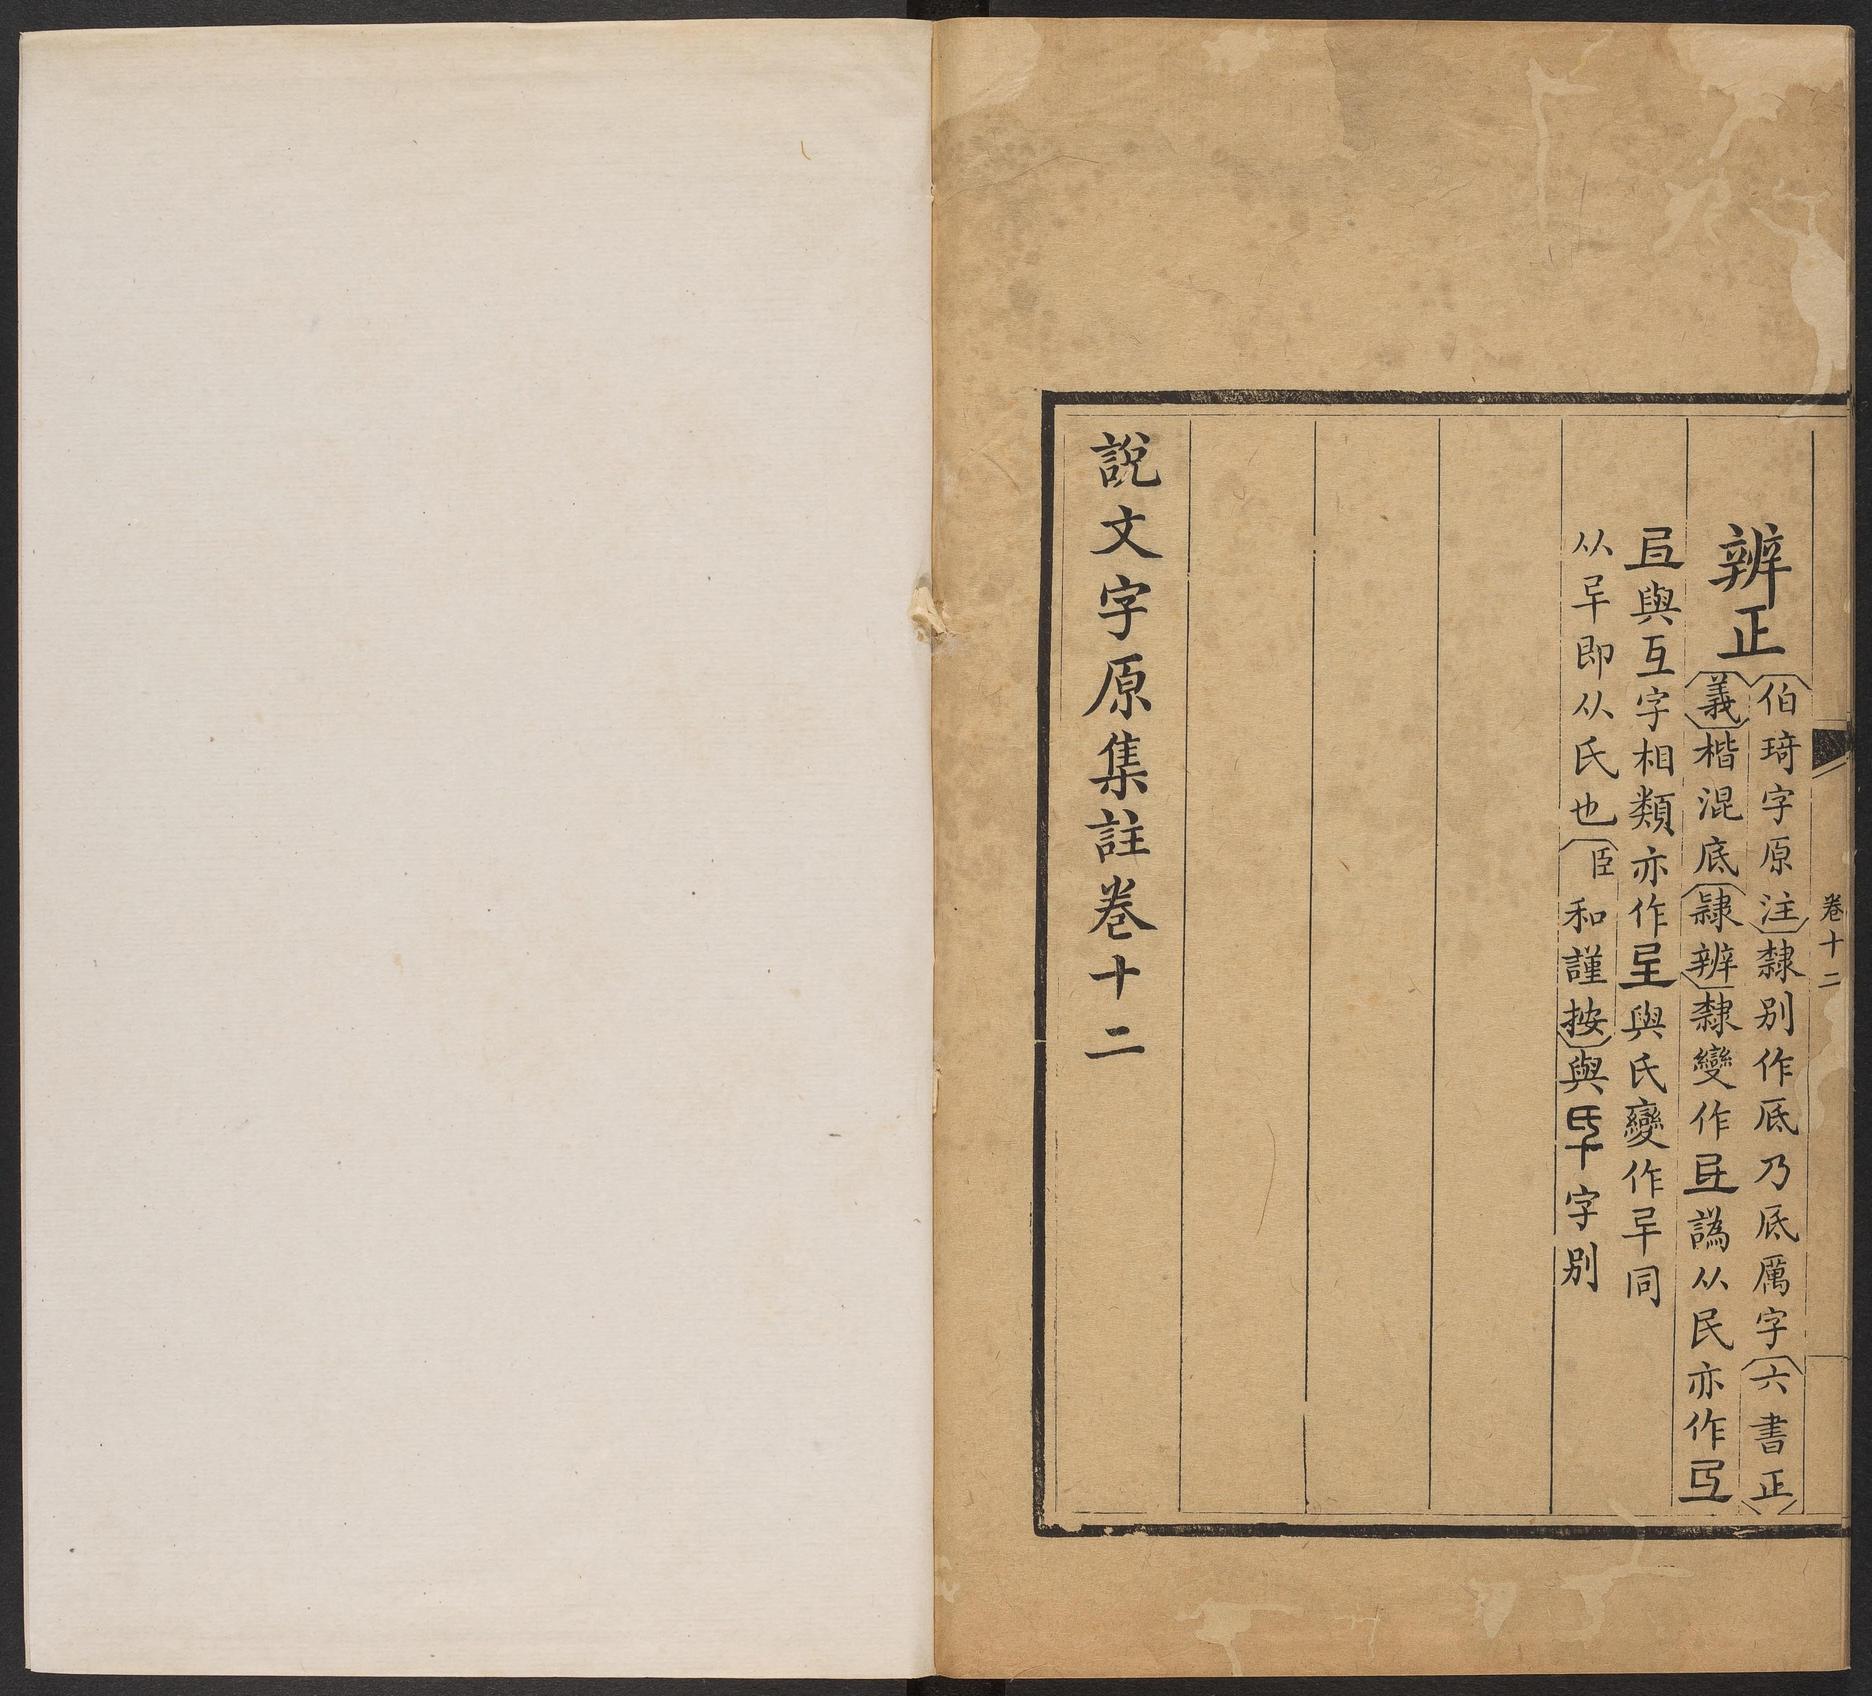 卷十二
辨正
伯琦字原注隸别作厎乃厎厲字六書正
義楷混底隸辨隸變作譌从民亦作
與互字相類亦作與氏變作同
从即从氏也臣和謹按與字别
說文字原集註卷十二